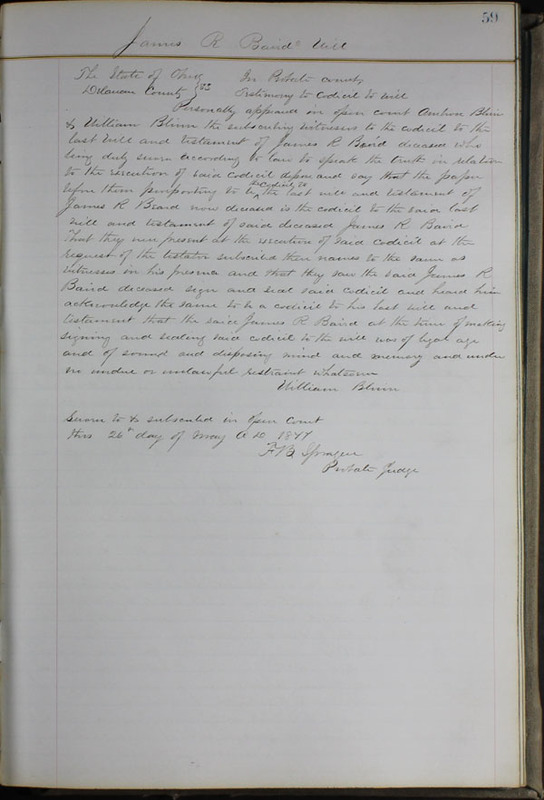 59
James R Baird's Will
The State of Ohio } ss In Probate County
Delaware County } Testimony to Codicil to will
Personally appeared in open court Blinn
& William Blinn the subscribing witnesses to the codicil to the
last will and testament of James R Baird deceased who
being duly sworn according to law to speak the truth in relation
to the execution of said codicil depose and say that the paper
before them purporting to be ^the codicil to^ the last will and testament of
James R Beard now deceased is the codicil to the said last
will and testament of said deceased James R Baird
That they were present at the execution of said codicil at the
request of the testator subscribed their names to the same as
witnesses in his presence and that they saw the said James R
Baird deceased sign and seal said codicil and heard him
acknowledge the same to be a codicil to his last will and
testament that the said James R Baird at the time of making
signing and sealing said codicil to the will was of legal age
and of sound and disposing mind and memory and under
no undue or unlawful restraint whatsoever
William Blinn
Sworn to & subscribed in open court
this 26th day of May A D 1877
F B Sprague
Probate Judge